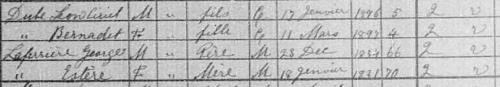 Dube Leonlivil M " fils C 17 Janvier 1896 5 2 v
" Bernadet F " fille C 11 Mars 1897 4 2 v
Laferrière Georges M " Père M 23 Dec 1834 66 2 v
" Estère F " Mère M 18 Janvier 1831 70 2 v